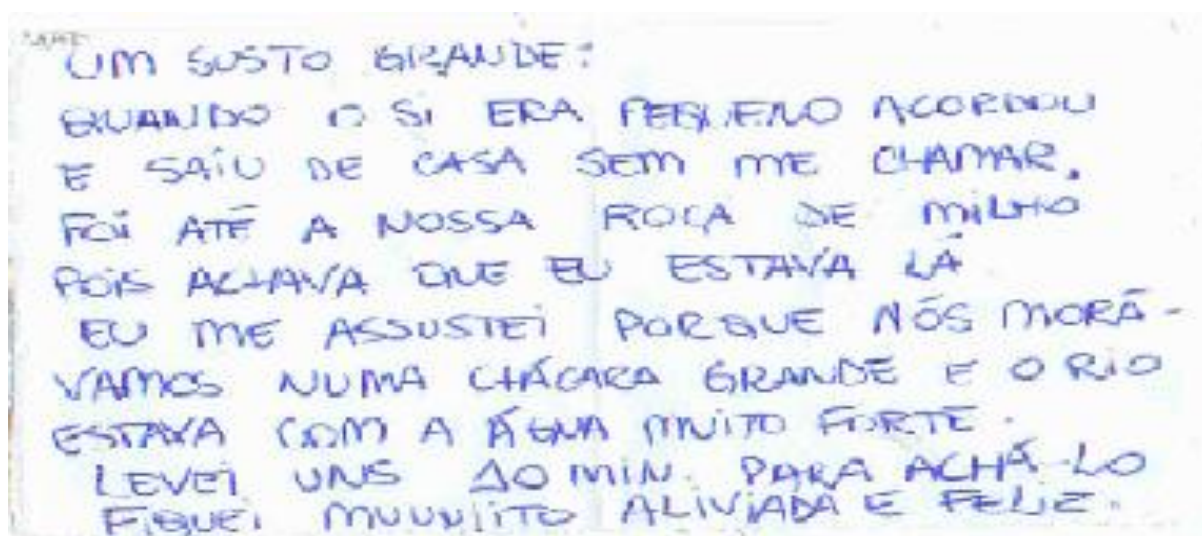 MÃE
UM SUSTO GRANDE:
QUANDO O SI ERA PEQUENO ACORDOU
E SAIU DE CASA SEM ME CHAMAR.
FOI ATÉ A NOSSA ROÇA DE MILHO
POIS ACHAVA QUE EU ESTAVA LÁ
EU ME ASSUSTEI PORQUE NÓS MORÁ-
VAMOS NUMA CHÁCARA GRANDE E O RIO
ESTAVA COM A ÁGUA MUITO FORTE.
LEVEI UNS 10 MIN. PARA ACHÁ-LO
FIQUEI MUUUIITO ALIVIADA E FELIZ.